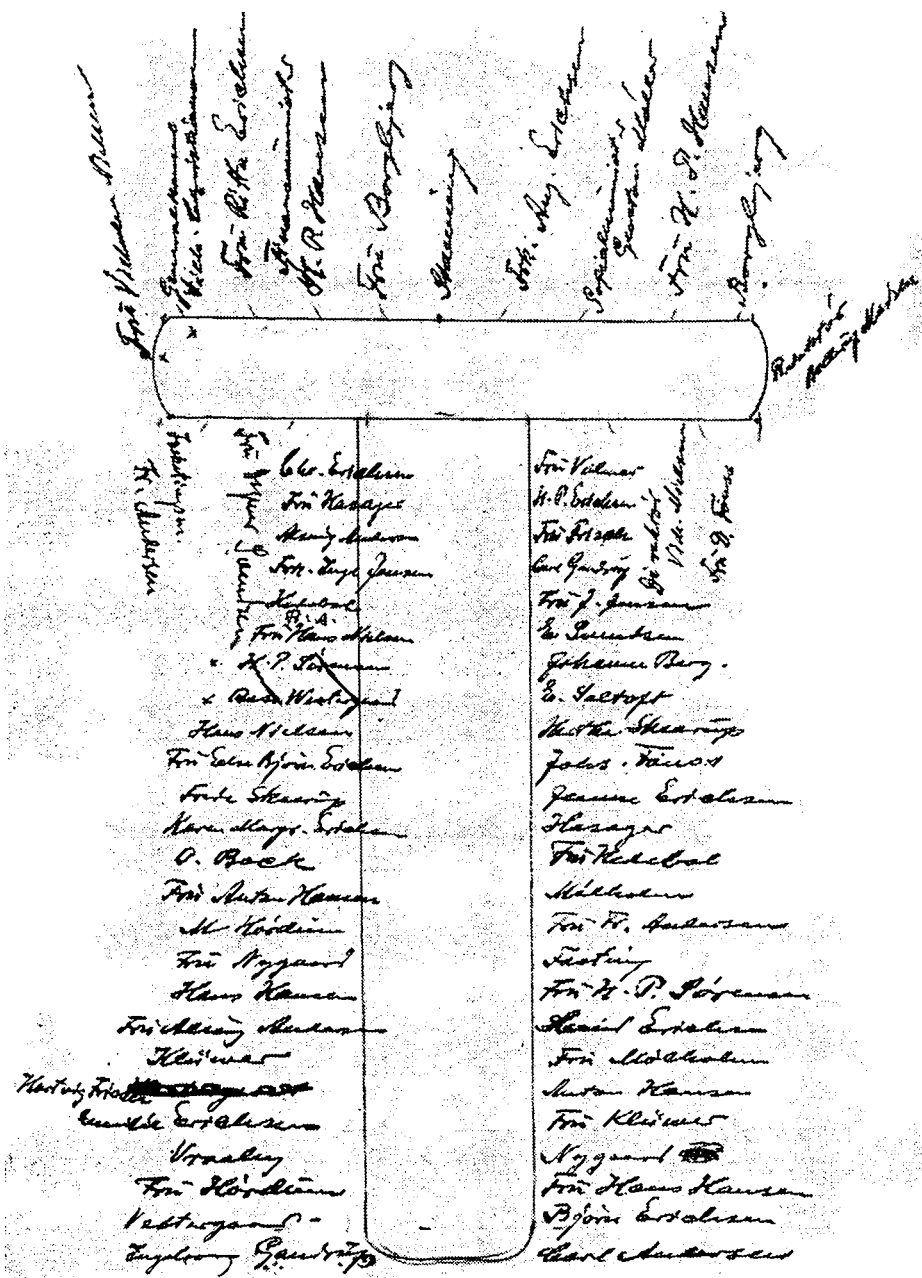 Fru Vilhelm
Fru Ritta Erichsen
Finansminister
H. P. Hansen
Fru Borgbjerg
Stauning
Frk. Aug. Erichsen
Socialminister
Fru H. P. Hansen
Borgbjerg
Redaktør
Fr. Andersen
Chr. Erichsen
Fru Hasager
Alsing Andersen
Frk. Inge Jensen
Kedebol
Fru Hans Nielsen
H. P. Sørensen
Hans Nielsen
Fru Edse Bjørn Erichsen
Frede Skaarup
Karen Margr. Erichsen
O. Bock
Fru Anton Hansen
M Hørdum
Fru Nygaard
Hans Hansen
Fru Alsing Andersen
Klüwer
Hartvig Frisch
Emilie Erichsen
Vraaby
Fru Hørdum
Vestergaard -
Ingeborg Gandrup
Fru Volmer
H. P. Erichsen
Fru Frisch
Carl Gandrup
Fru J. Jensen
E. Svendsen
Johanne Berg.
E. Saltoft
Hertha Skaarup
Johs. Fønss
Jenine Erichsen
Hasager
Fru Kedebol
Mølholm
Fru Fr. Andersen
Fasting
Fru H. P. Sørensen
Svend Erichsen
Fru Mølholm
Anton Hansen
Fru Klüwer
Nygaard
Fru Hans Hansen
Bjørn Erichsen
Carl Andersen
Direktør
Fru O. Fønss